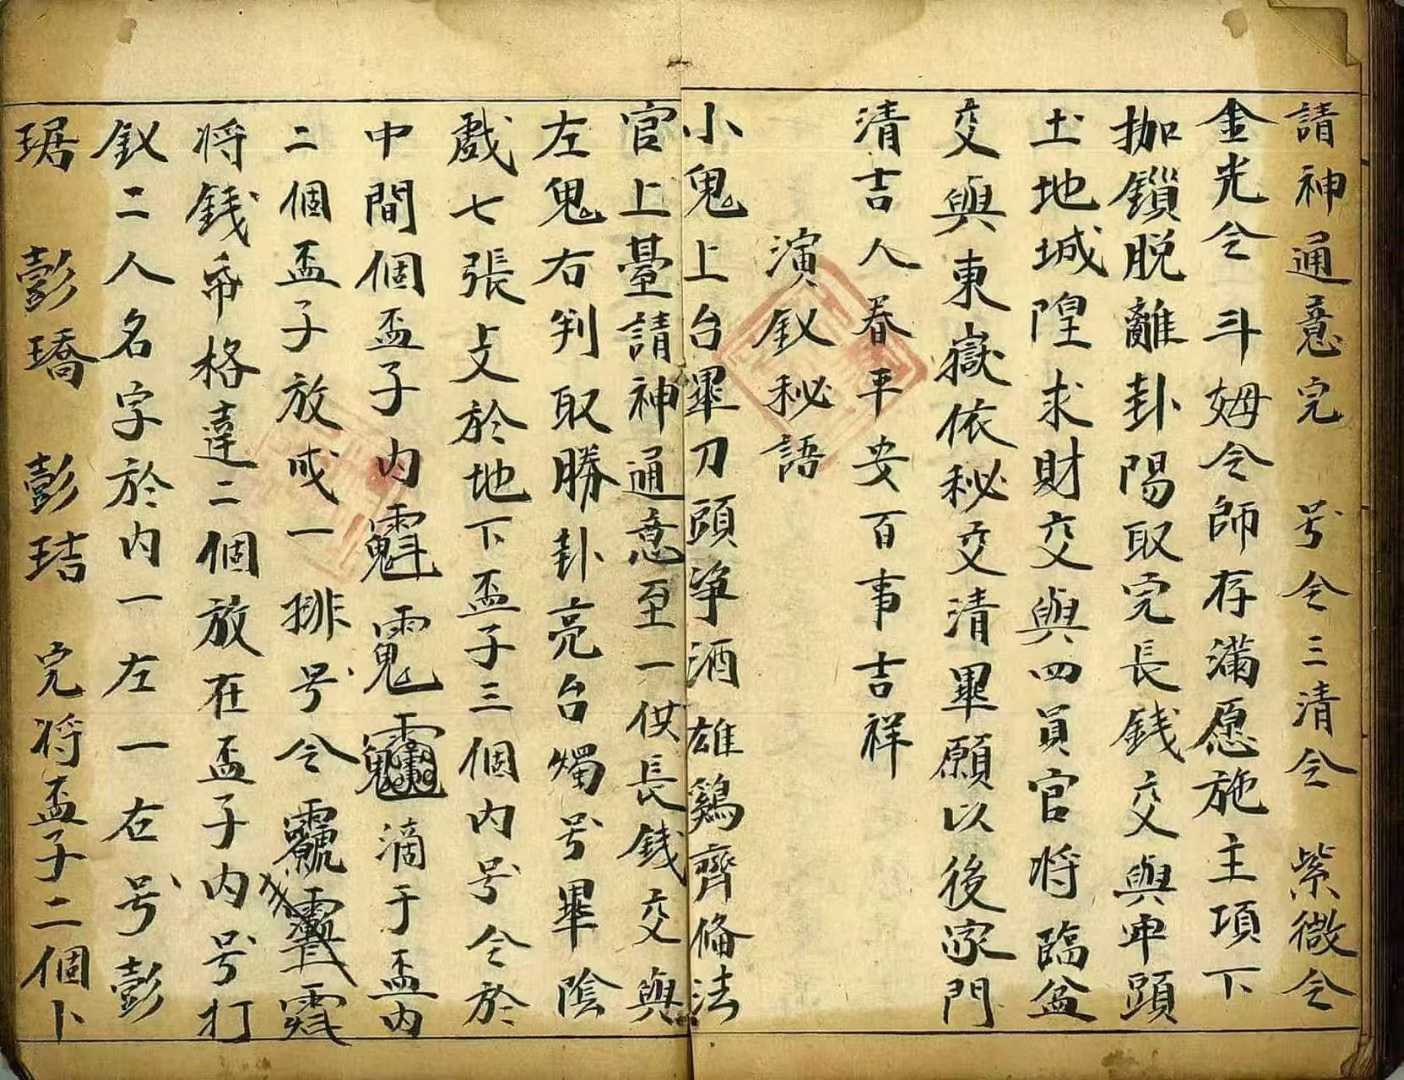 請神通意完 号令三清令 紫微令
金光令斗姆令師存滿愿施主項下
枷鎖脱離卦陽取完長錢交與牢頭
土地城隍求財交與四員官将臨盆
交與東嶽依秘交清畢願以後家門
清吉人眷平安百事吉祥
演釵秘語
小鬼上台畢刀頭净酒雄鷄齊俻法
官上臺請神通意至一伏長錢交與
左鬼右判取勝卦亮台燭号畢陰
戲七張攴於地下盃子三個内号令於
中間個盃子内 滴于盃内
二個盃子放成一排号令
将錢帋格達二個放在盃子内号打
釵二人名字於内一左一右号彭
琚 彭璚 彭琂 完将盃子二個卜